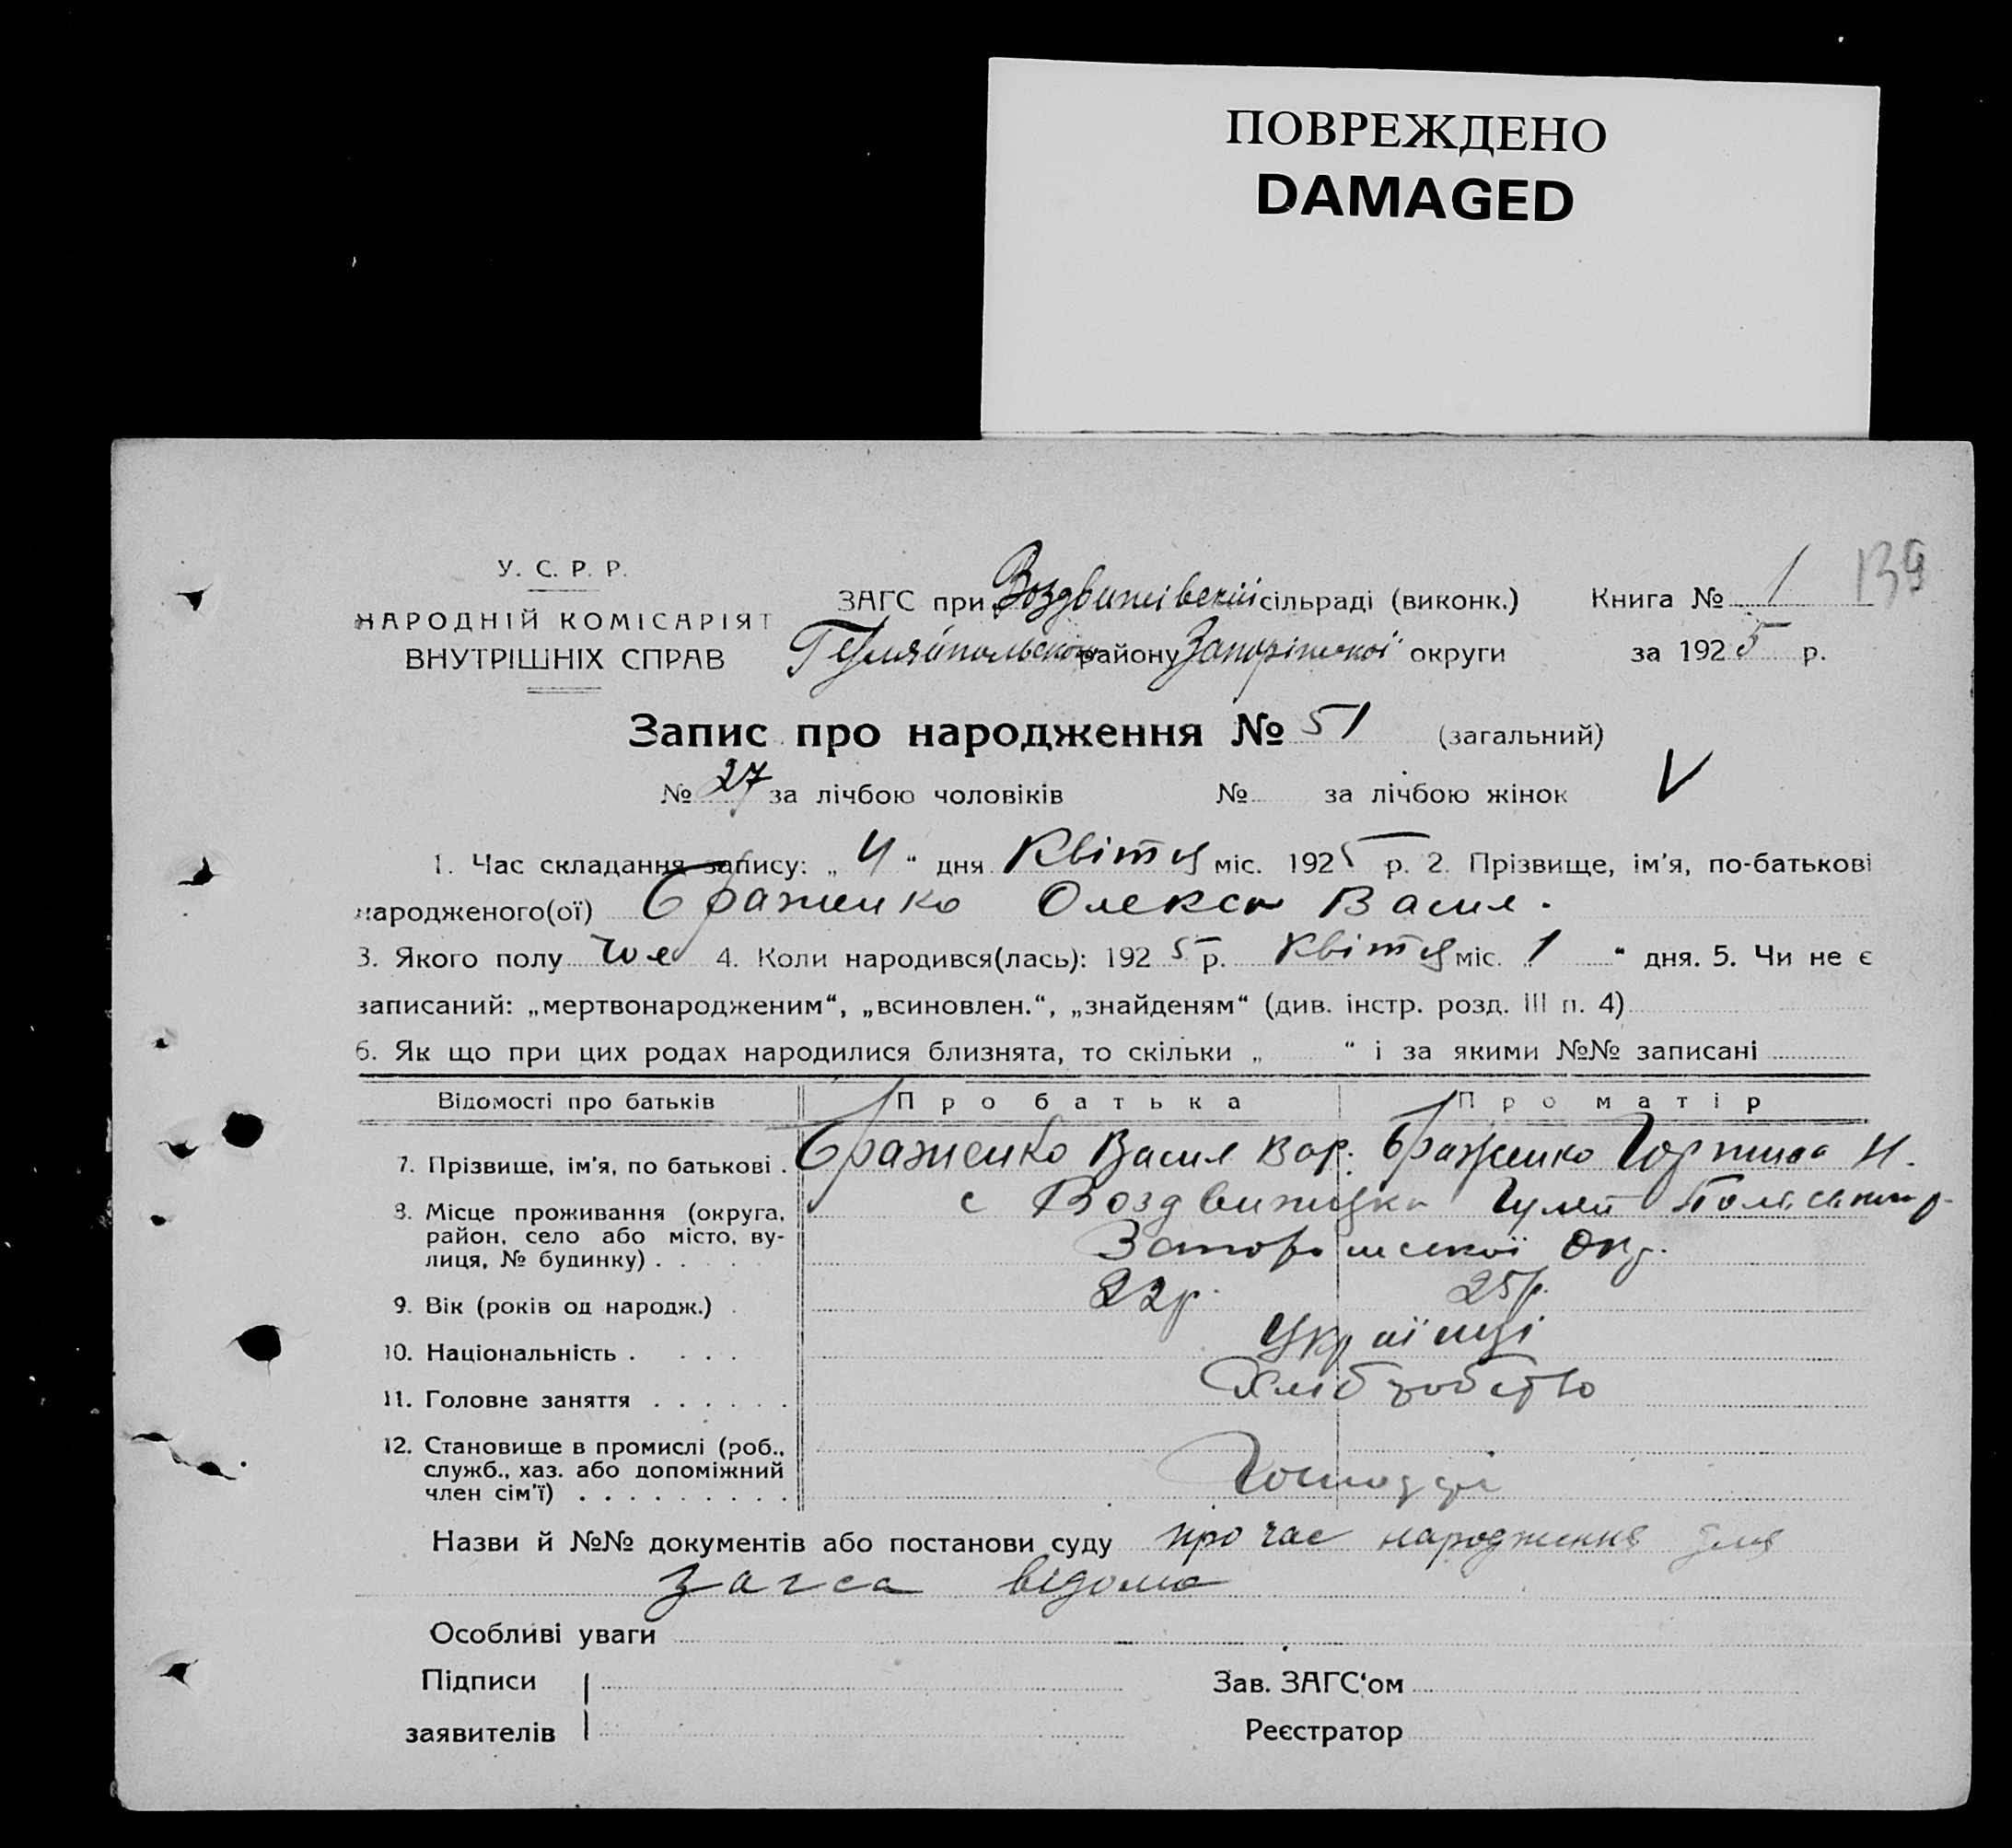 ПОВРЕЖДЕНО
DAMAGED
У. С. Р. Р.
НАРОДНІЙ КОМІСАРІЯТ
ВНУТРІШНІХ СПРАВ
ЗАГС при Воздвижівській сільраді (виконк.)
Книга № 1 139
району Запоріжської округи
за 1925 р.
Запис про народження № 51 (загальний)
№ 27 за лічбою чоловіків № за лічбою жінок V
1. Час складання запису: „ 4 “ дня Квітця міс. 1925 р. 2. Прізвище, ім’я, по-батькові
народженого(ої) Браженко Олекса Васил.
3. Якого полу чол 4. Коли народився(лась): 1925 р. Квітця міс. „ 1 “ дня. 5. Чи не є
записаний: „мертвонародженим“, „всиновлен.“, „знайденям“ (див. інстр. розд. III п. 4)
6. Як що при цих родах народилися близнята, то скільки „ “ і за якими №№ записані
Відомості про батьків Про батька Про матір
7. Прізвище, ім’я, по батькові . Браженко Васил Вар. Браженко Горпина Н.
8. Місце проживання (округа, с Воздвижвка Гуляй
район, село або місто, ву-
лиця, № будинку) . . . . Запоріжської Окр.
9. Вік (років од народж.) . 22р. 25р.
10. Національність . . . . Українці
11. Головне заняття . . . . . . Хліборобство
12. Становище в промислі (роб.,
служб., хаз. або допоміжний
член сім’ї) . . . . . . . . .
Назви й №№ документів або постанови суду про час народження для
загса відомо
Особливі уваги
Підписи Зав. ЗАГС‘ом
заявителів Реєстратор